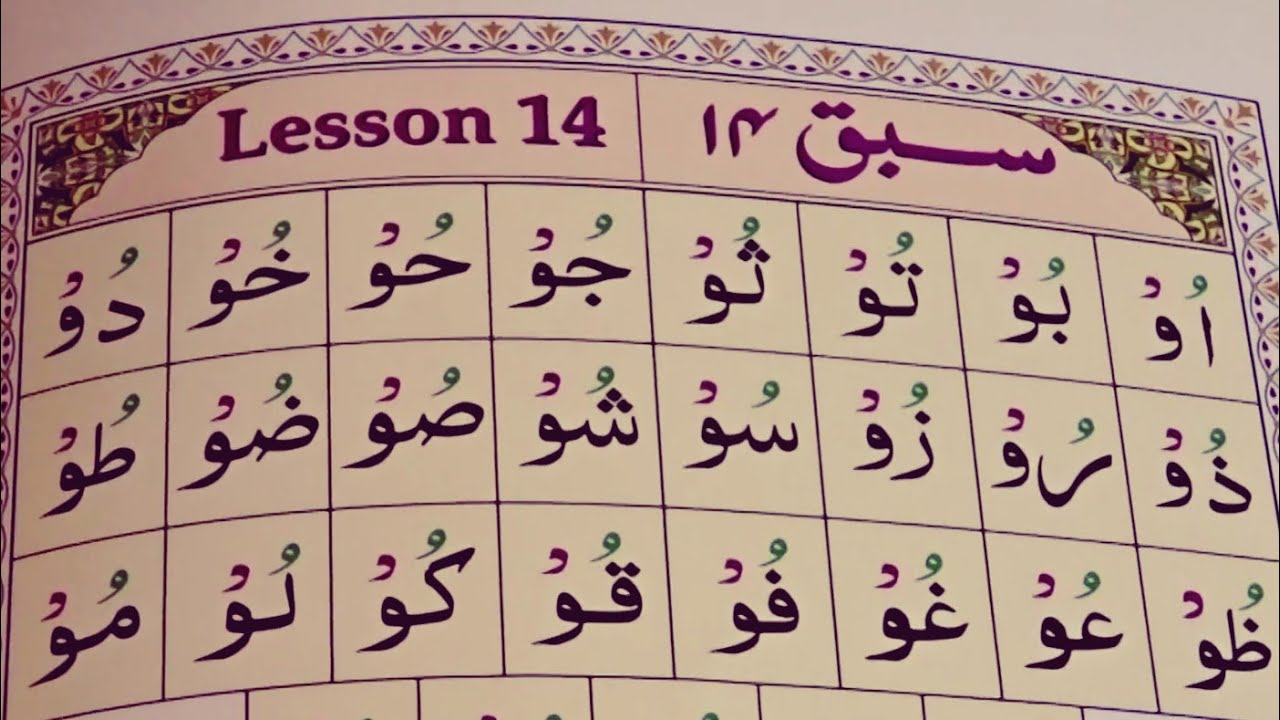 Lesson 14 سبق ۱۴
اُوْ بُوْ تُوْ ثُوْ جُوْ حُوْ خُوْ دُوْ
ذُوْ رُوْ زُوْ سُوْ شُوْ صُوْ ضُوْ طُوْ
ظُوْ عُوْ غُوْ فُوْ قُوْ كُوْ لُوْ مُوْ